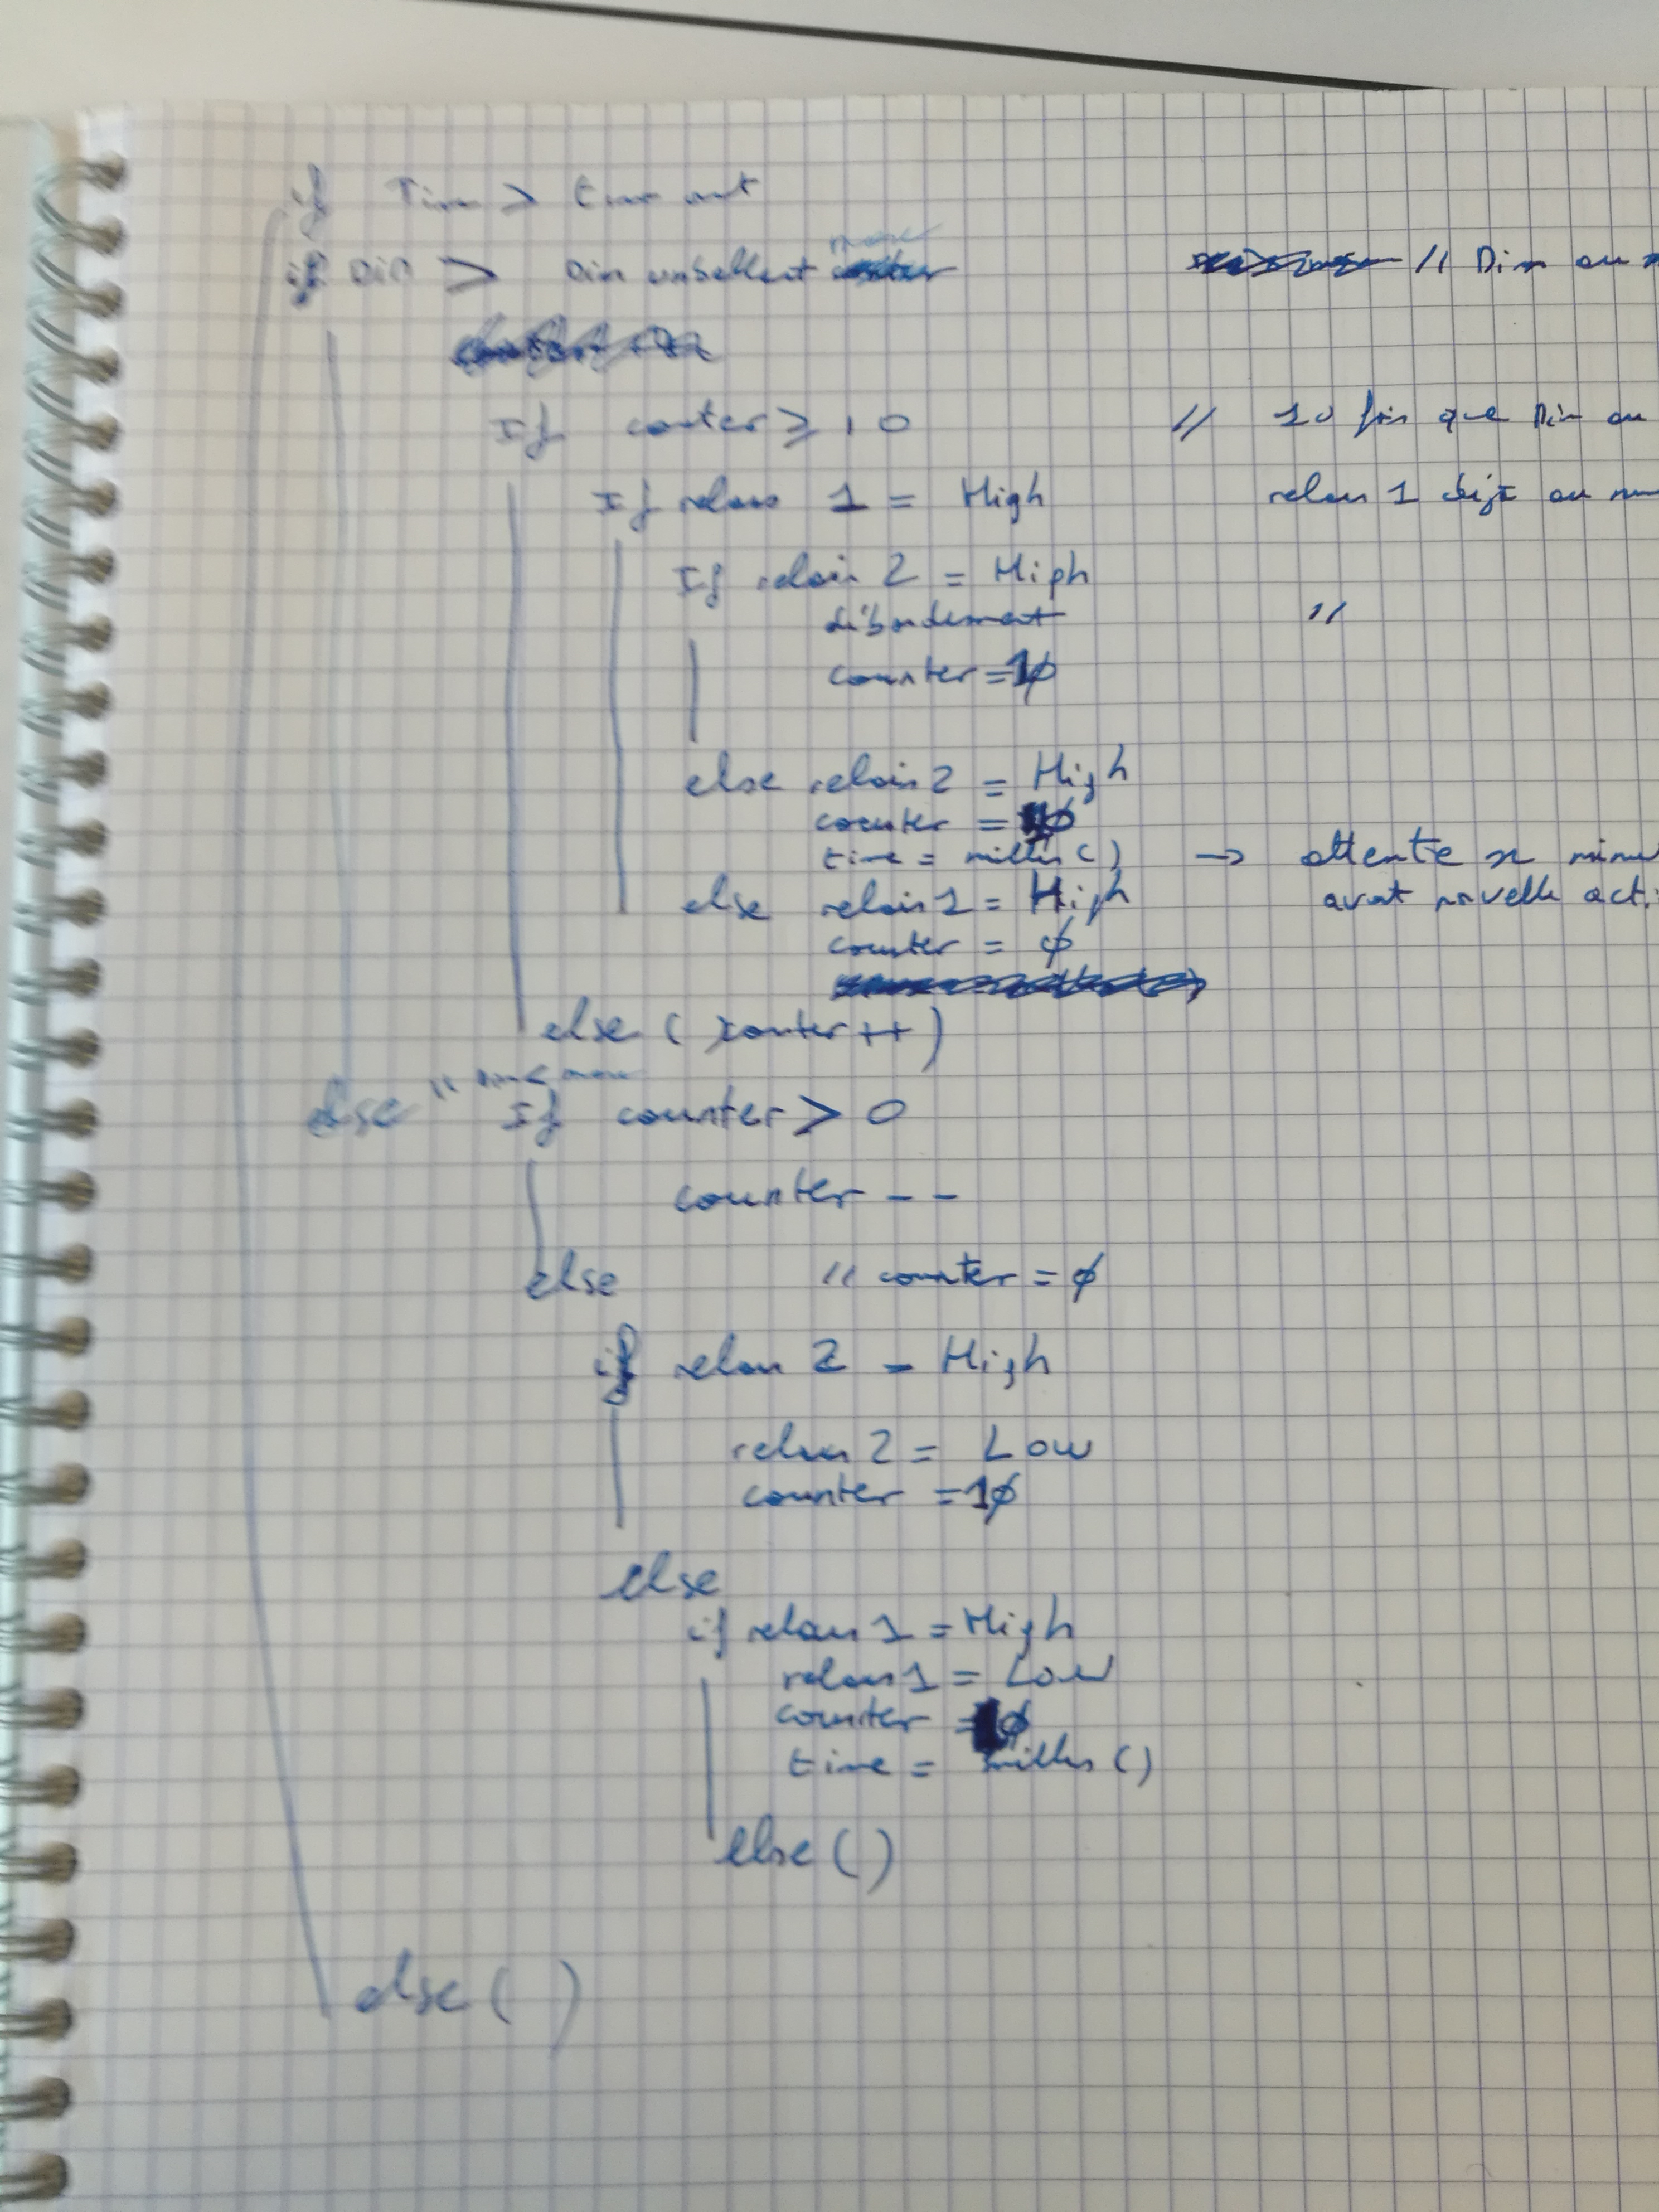 if Time > time out
if Din > Din max // Din au
If conter ≥ 10 // 10 fois que Din au
If relais 1 = High relais 1 déjà au
If relais 2 = High
débordement //
counter = 1φ
else relais 2 = High
counter = 1φ
time = millis () → attente x minu
else relais 1 = High avant nouvelle act
counter = φ
else ( conter ++ )
else // Din < max
If counter > 0
counter --
else // counter = φ
if relais 2 = High
relais 2 = Low
counter = 1φ
else
if relais 1 = High
relais 1 = Low
counter = 1φ
time = millis ()
else ()
else ( )